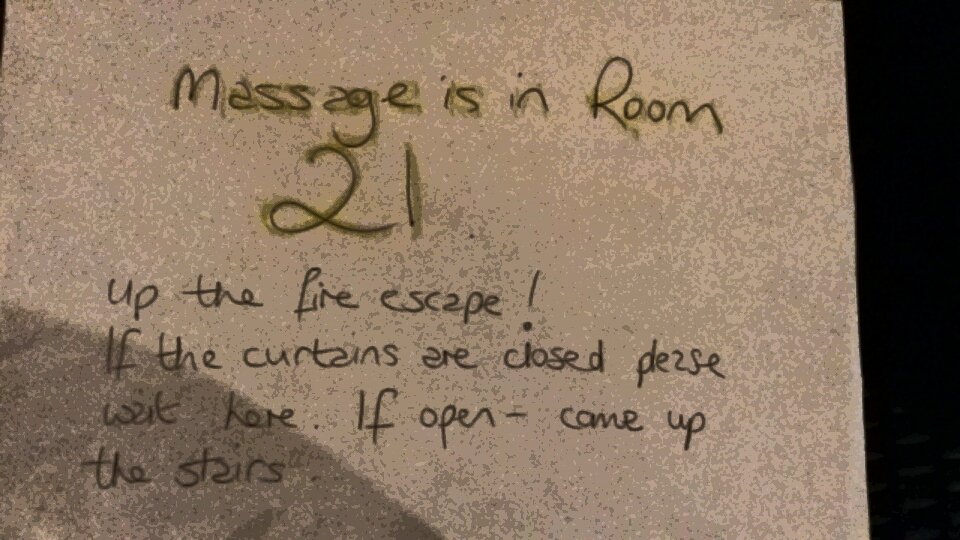 Massage is in Room
21
up the fire escape!
If the curtains are closed please
wait here. If open - come up
the stairs.